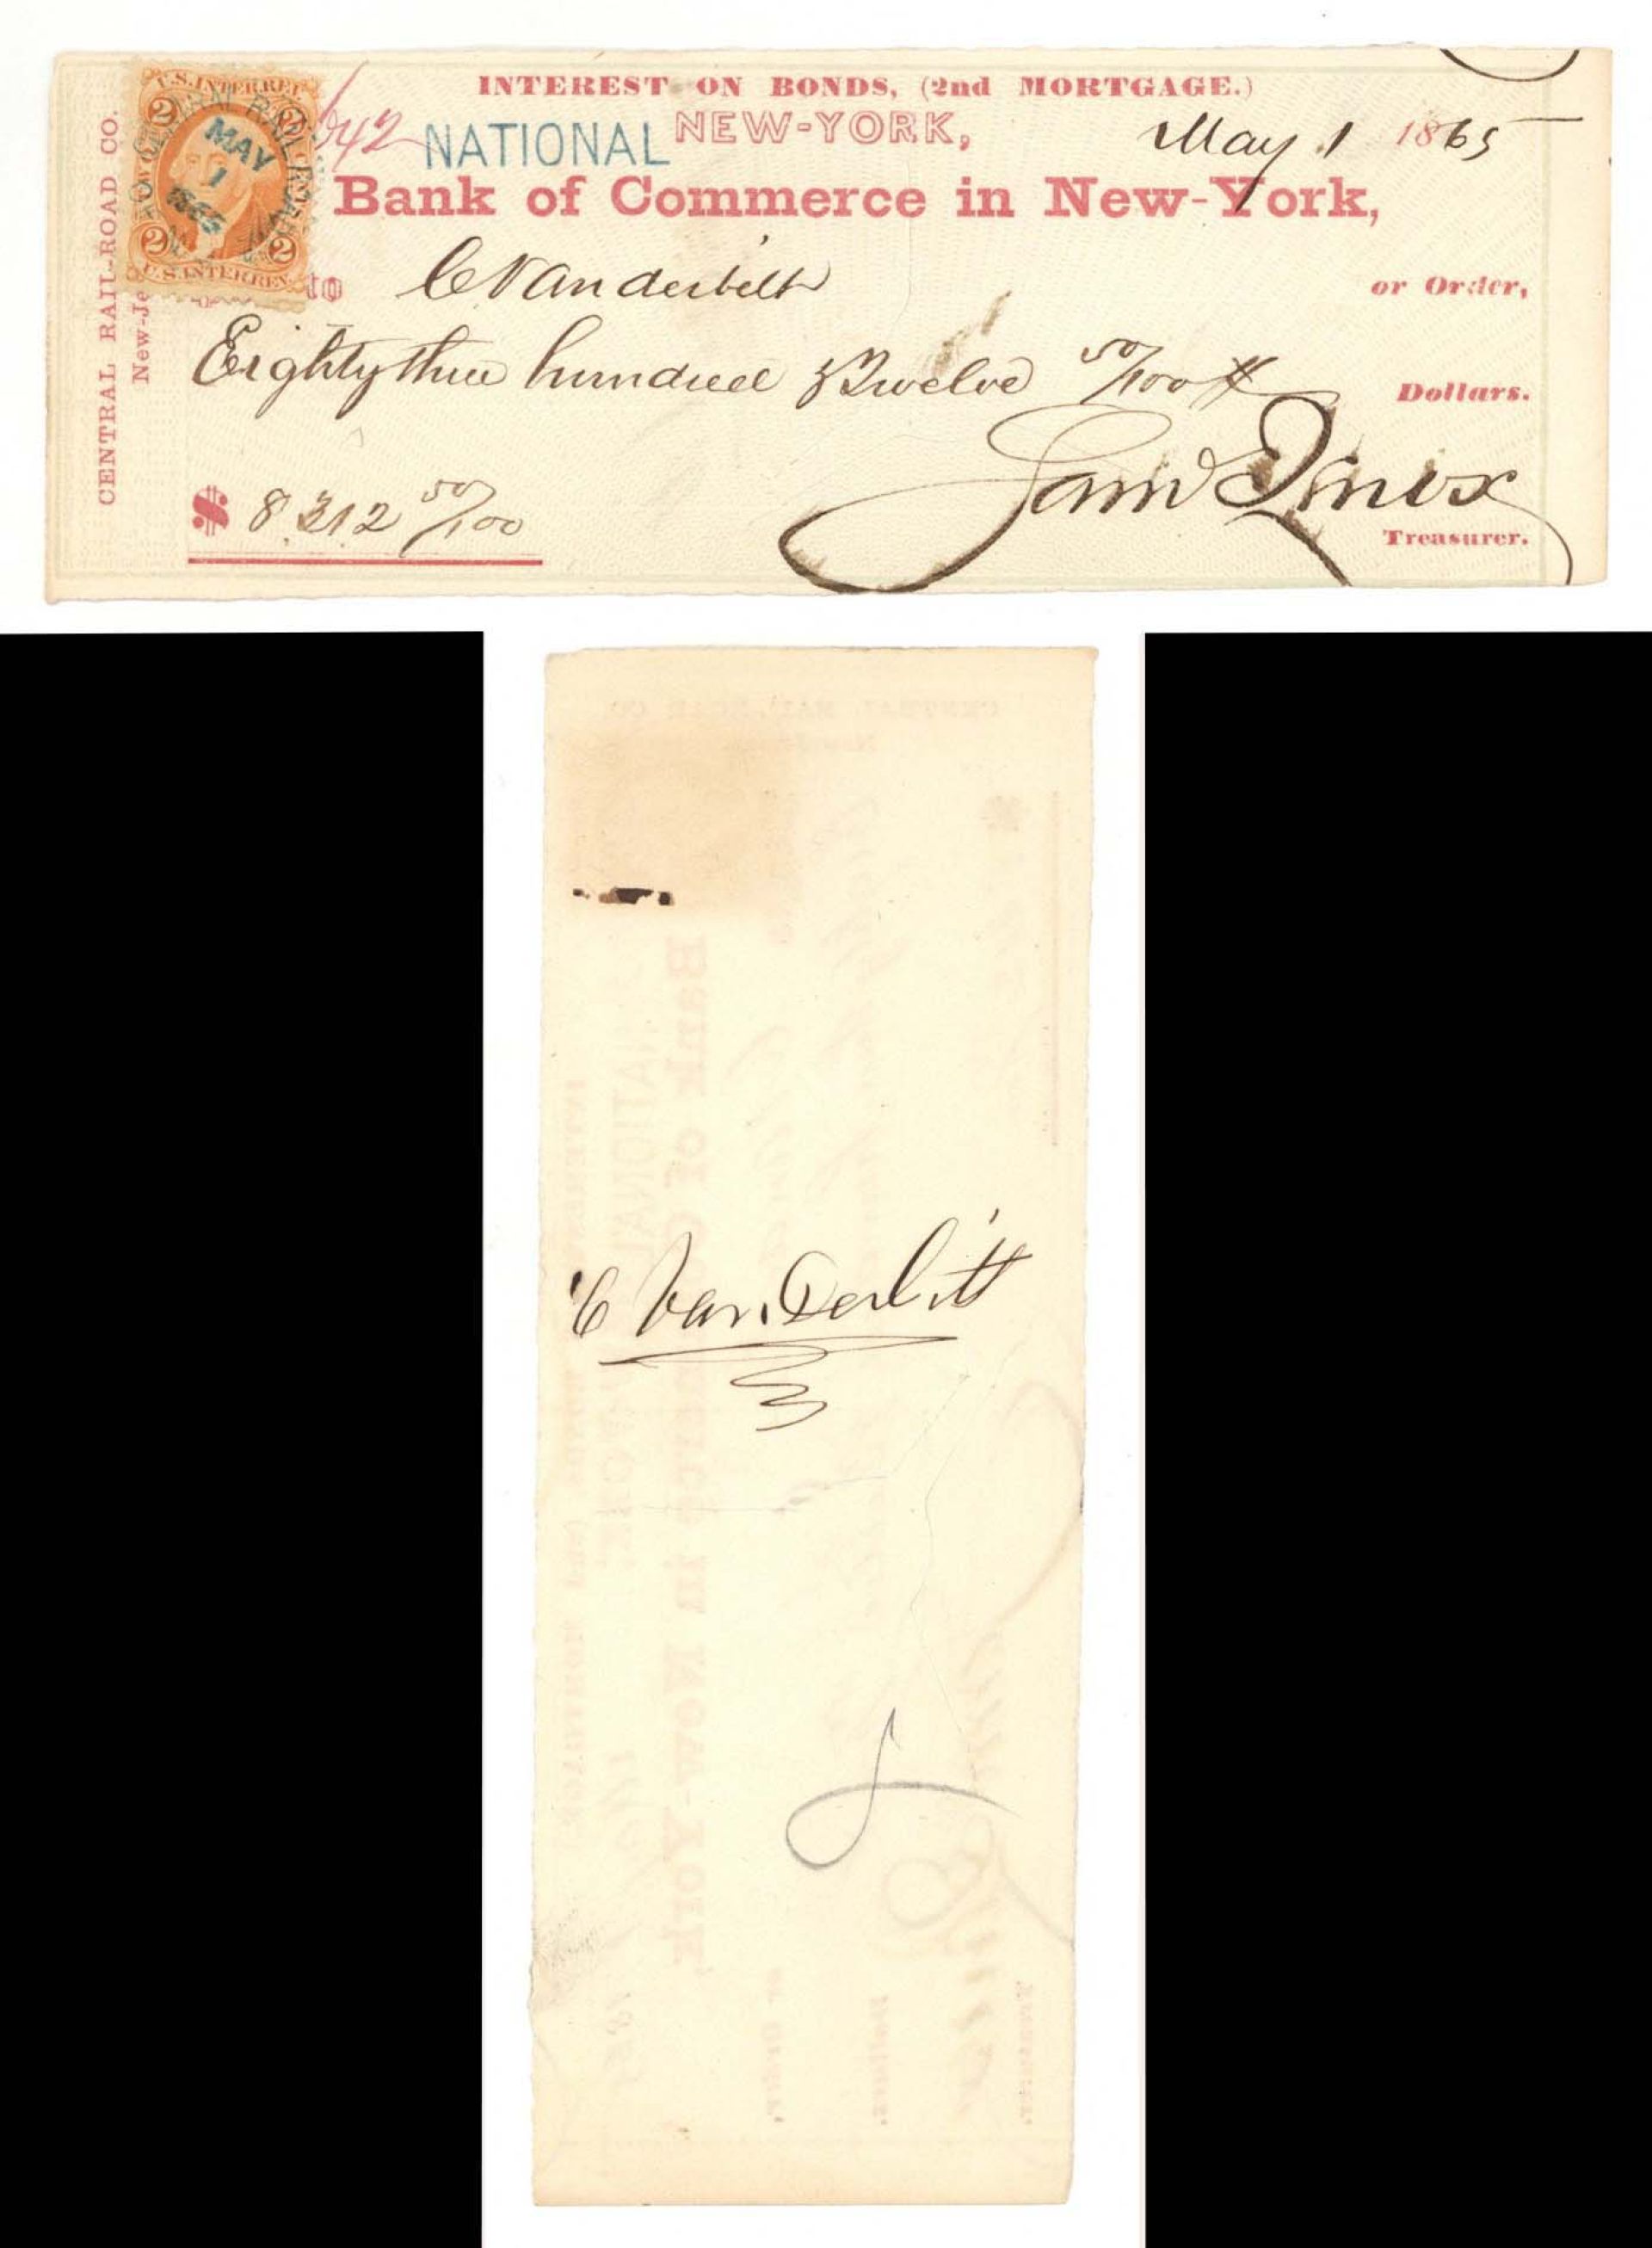 INTEREST ON BONDS, (2nd MORTGAGE.)
642 NATIONAL NEW-YORK, May 1 1865
Bank of Commerce in New-York,
to C Vanderbilt or Order,
Eighty three hundred & Twelve 50/100 Dollars.
$ 8,312 50/100
Treasurer.
CENTRAL RAIL-ROAD CO.
New-Je
U.S. INTER. REV.
2 2
MAY
1
1865
2 2
U.S. INTER. REV.
C Van Derbilt